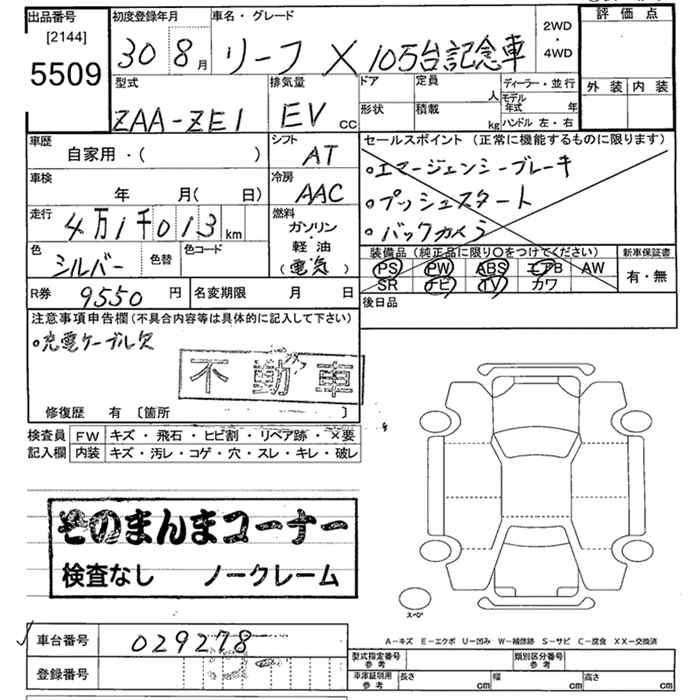 出品番号
[2144]
5509
初度登録年月
30 8月
車名・グレード
リーフ X 105台記念車
2WD
・
4WD
評価点
外装 内装
型式
ZAA-ZE1
排気量
EV CC
ドア
定員
人
形状
積載
kg
ディーラー・並行
モデル年式 年
ハンドル 左・右
車歴
自家用・( )
シフト
AT
車検
年 月( 日)
冷房
AAC
走行
4万1千013km
燃料
ガソリン
・
軽油
(電気)
色
シルバー
色替
色コード
セールスポイント(正常に機能するものに限ります)
・エマージェンシーブレーキ
・プッシュスタート
・バックカメラ
装備品(純正品に限り〇をつけてください)
PS PW ABS エアB AW
SR ナビ TV カワ
新車保証書
有・無
R券 9550円
名変期限 月 日
後日品
注意事項申告欄(不具合内容等は具体的に記入して下さい)
・充電ケーブル欠
不動車
修復歴 有 [箇所 ]
検査員記入欄
FW キズ・飛石・ヒビ割・リペア跡・×要
内装 キズ・汚レ・コゲ・穴・スレ・キレ・破レ
そのまんまコーナー
検査なし ノークレーム
スペア
車台番号 029278
登録番号
A-キズ E-エクボ U-凹み W-補修跡 S-サビ C-腐食 XX-交換済
型式指定番号 参考
類別区分番号 参考
車庫証明用 参考
長さ cm
幅 cm
高さ cm